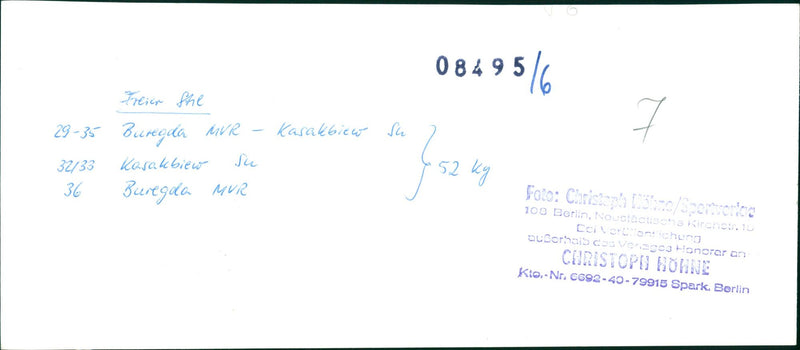 08495/6
7
Freier Stil
29-35 Buregda MVR – Kasakbiew Su
32/33 Kasakbiew Su
36 Buregda MVR
} 52 kg
Foto: Christoph Höhne/Sportverlag
108 Berlin, Neustädtische Kirchstr. 15
Bei Veröffentlichung
außerhalb des Verlages Honorar an
CHRISTOPH HÖHNE
Kto.-Nr. 6692-40-79915 Spark. Berlin